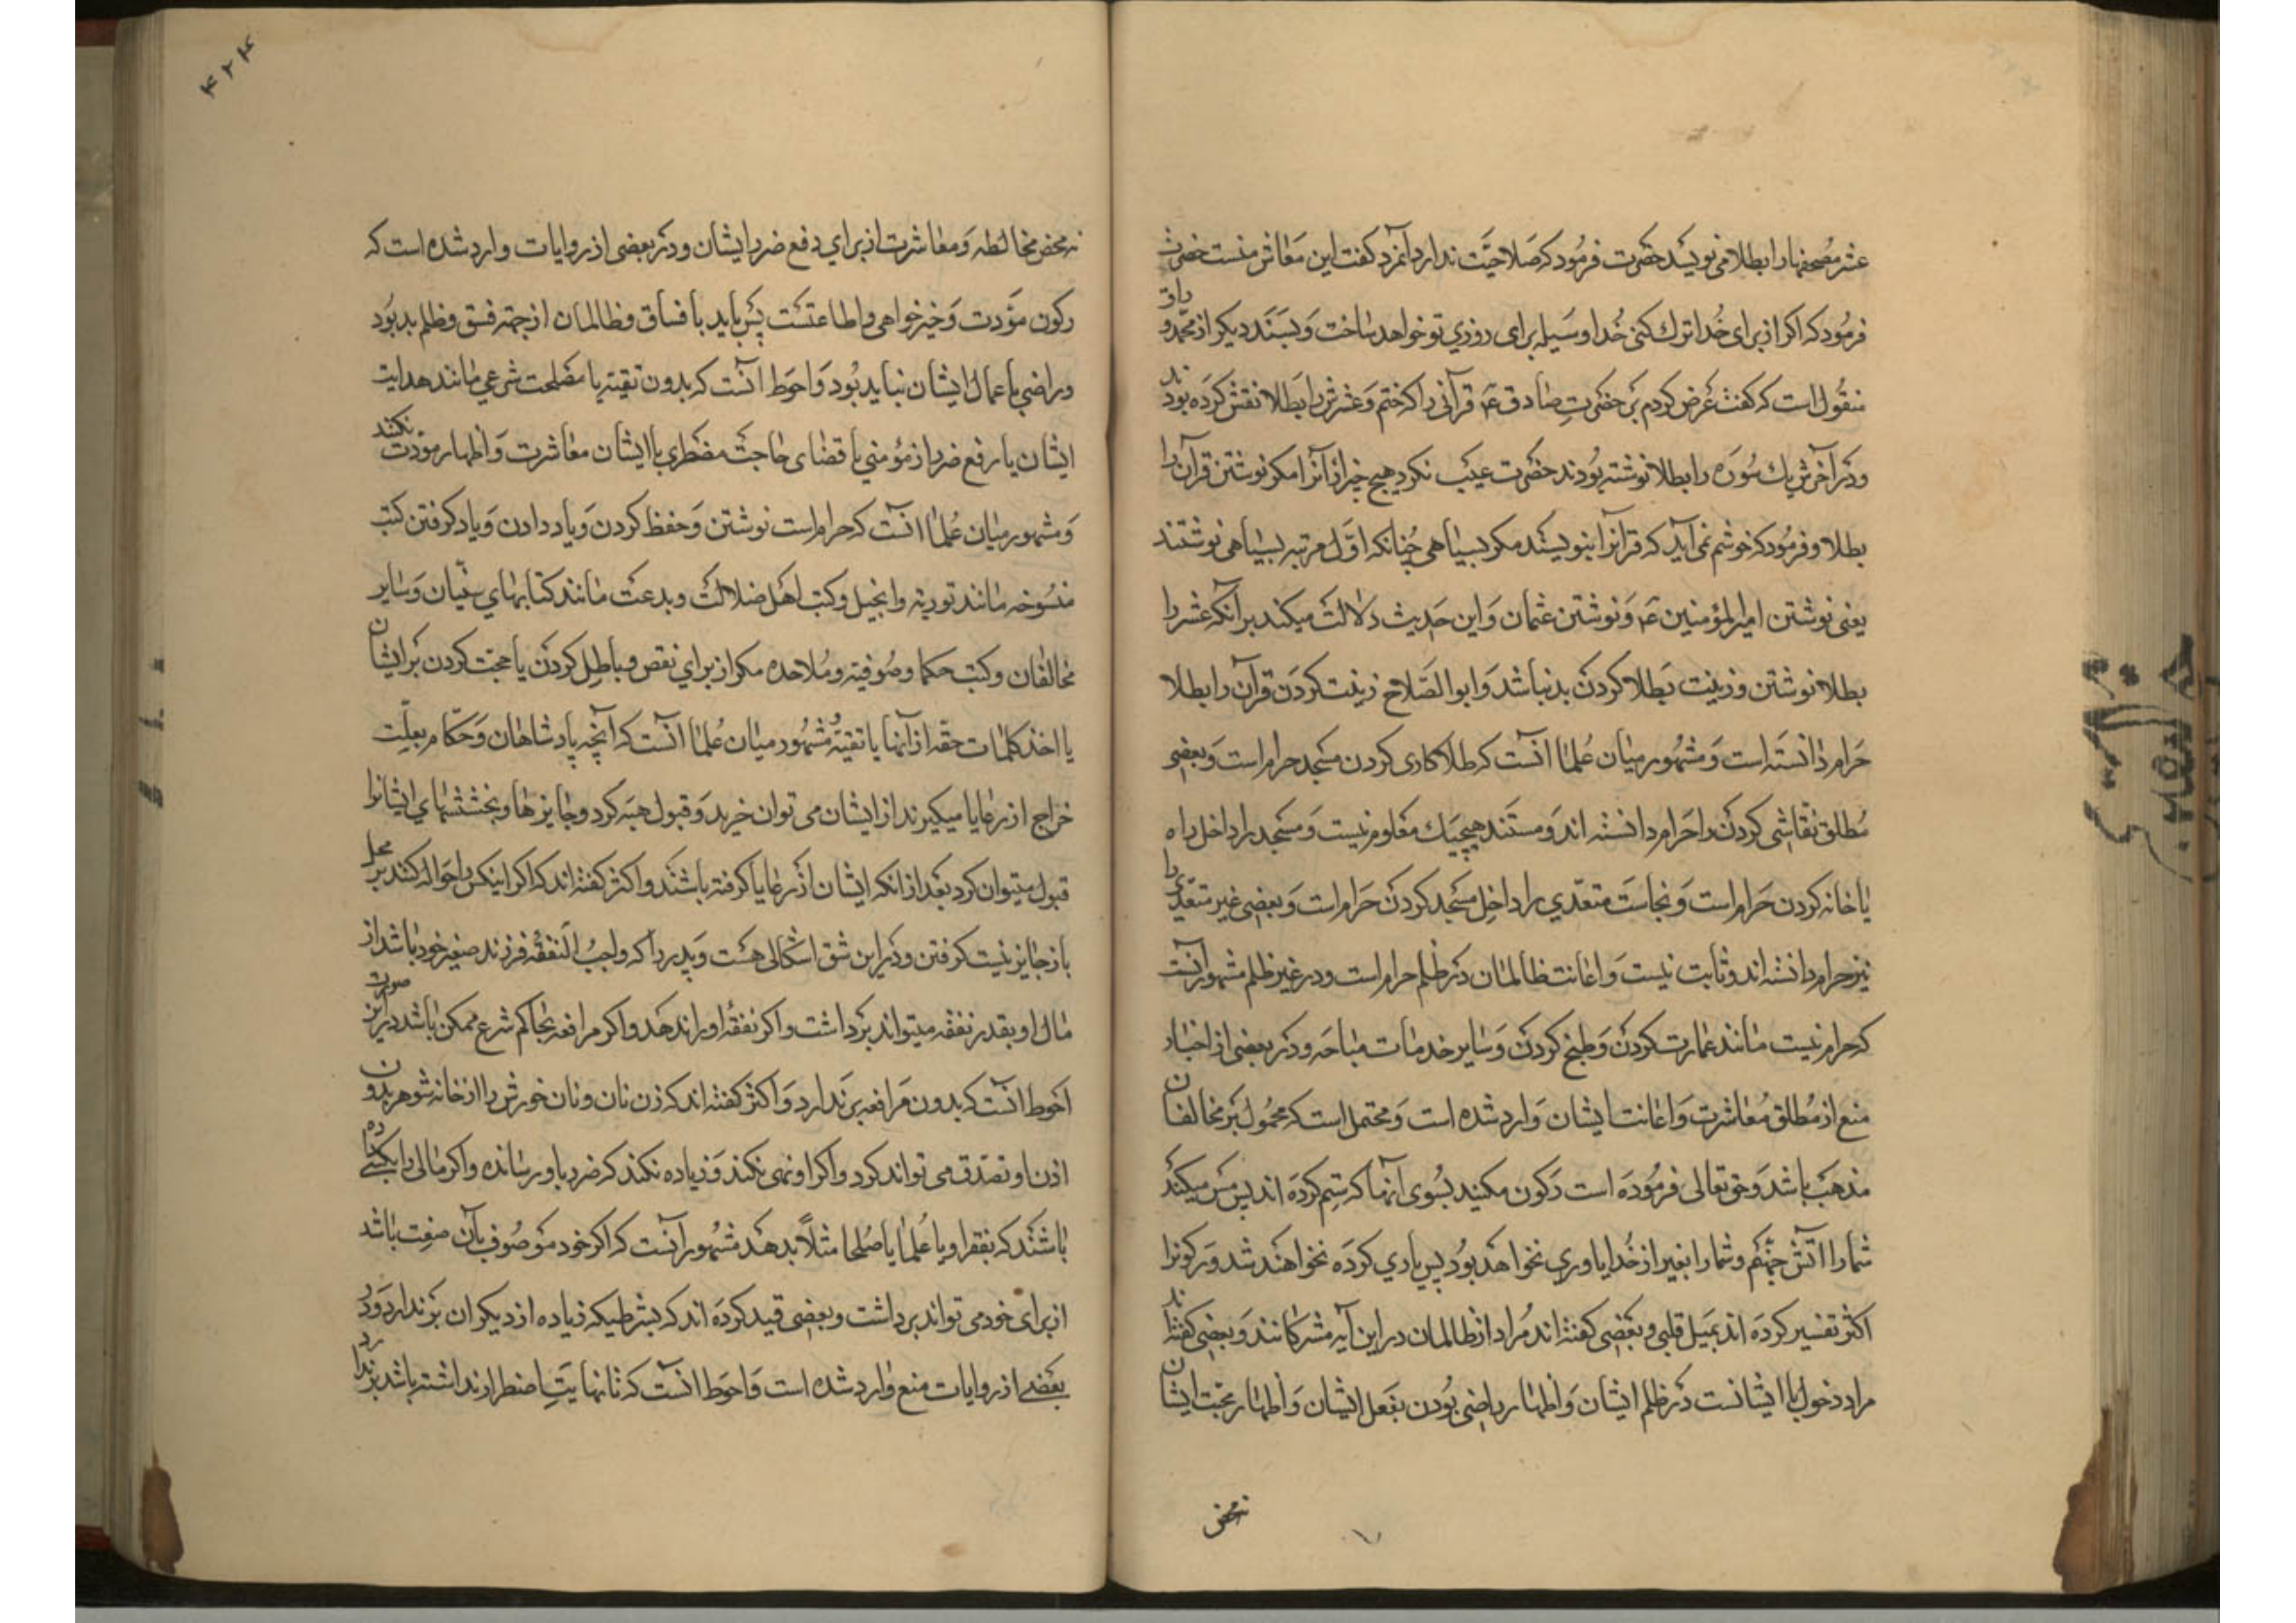 عشر مصحفها را بطلا می نویسد حضرت فرمود که صلاحیت ندارد آنمرد گفت این معاش منست حضرت
فرمود که اگر از برای خدا ترك کنی خدا وسیله برای روزی تو خواهد ساخت وبسند دیگر از محمد وراق
منقول است که گفت عرض کردم بر حضرت صادق ع قرآنی را که ختم وعشرش را بطلا نقش کرده بودند
ودر آخرش یك سوره را بطلا نوشته بودند حضرت عیب نکرد هیچ چیز از آنرا مگر نوشتن قرآن را
بطلا وفرمود که خوشم نمی آید که قرآنرا بنویسند مگر بسیاهی چنانکه اول مرتبه بسیاهی نوشتند
یعنی نوشتن امیرالمؤمنین ع ونوشتن عثمان واین حدیث دلالت میکند بر آنکه عشر را
بطلا نوشتن وزینت بطلا کردن بد نباشد وابوالصلاح زینت کردن قرآن را بطلا
حرام دانسته است ومشهور میان علما آنست که طلاکاری کردن مسجد حرام است وبعضی
مطلق نقاشی کردن را حرام دانسته اند ومستند هیچیك معلوم نیست ومسجد را داخل راه
یا خانه کردن حرام است ونجاست متعدی را داخل مسجد کردن حرام است وبعضی غیر متعدی را
نیز حرام دانسته اند وثابت نیست واعانت ظالمان در ظلم حرام است ودر غیر ظلم مشهور آنست
که حرام نیست مانند عمارت کردن وطبخ کردن وسایر خدمات مباحه ودر بعضی از اخبار
منع از مطلق معاشرت واعانت ایشان وارد شده است ومحتمل است که محمول بر مخالفان
مذهب باشد وحق تعالی فرموده است رکون مکنید بسوی آنها که ستم کرده اند پس مس میکند
شما را آتش جهنم وشما را بغیر از خدا یاوری نخواهد بود پس یاری کرده نخواهند شد ورکونرا
اکثر تفسیر کرده اند بمیل قلبی وبعضی گفته اند مراد از ظالمان در این آیه مشرکانند وبعضی گفته اند
مراد دخول با ایشانست در ظلم ایشان واظهار راضی بودن بفعل ایشان واظهار محبت ایشان
نه محض
۴۲۴
نه محض مخالطه ومعاشرت از برای دفع ضرر ایشان ودر بعضی از روایات وارد شده است که
رکون مودت وخیرخواهی واطاعتست پس باید با فساق وظالمان از جهة فسق وظلم بد بود
وراضی باعمال ایشان نباید بود واحوط آنست که بدون تقیه یا مصلحت شرعی مانند هدایت
ایشان یا رفع ضرر از مؤمنی یا قضای حاجت مضطری با ایشان معاشرت واظهار مودت نکند
ومشهور میان علما آنست که حرام است نوشتن وحفظ کردن ویاد دادن ویاد گرفتن کتب
منسوخه مانند توریة وانجیل وکتب اهل ضلالت وبدعت مانند کتابهای سنیان وسایر
مخالفان وکتب حکما وصوفیه وملاحده مگر از برای نقص وباطل کردن یا حجت کردن بر ایشان
یا اخذ کلمات حقه از آنها یا تقیه ومشهور میان علما آنست که آنچه پادشاهان وحکام بعلت
خراج از رعایا میگیرند از ایشان می توان خرید وقبول هبه کرد وجایزها وبخششهای ایشانرا
قبول میتوان کرد بعد از آنکه ایشان از رعایا گرفته باشند واکثر گفته اند که اگر اینکس را حواله کنند بر محل
باز جایز نیست گرفتن ودر این شق اشکالی هست وپدر را که واجب النفقه فرزند صغیر خود باشد از
مال او بقدر نفقه میتواند برداشت واگر نفقه او را ندهد واگر مرافعه بحاکم شرع ممکن باشد در این صورت
احوط آنست که بدون مرافعه برندارد واکثر گفته اند که زن نان ونان خورش را از خانه شوهر بدون
اذن او تصدق می تواند کرد واگر او نهی نکند وزیاده نکند که ضرر باو رساند واگر مالی را بکسی داده
باشند که بفقرا ویا علما یا صلحا مثلاً بدهد مشهور آنست که اگر خود موصوف بآن صفت باشد
از برای خود می تواند برداشت وبعضی قید کرده اند که بشرطیکه زیاده از دیگران برندارد ودر
بعضی از روایات منع وارد شده است واحوط آنست که تا نهایت اضطرار نداشته باشد برندارد